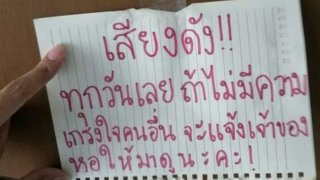 เสียงดัง!!
ทุกวันเลย ถ้าไม่มีความ
เกรงใจคนอื่น จะแจ้งเจ้าของ
หอให้มาดูนะคะ!